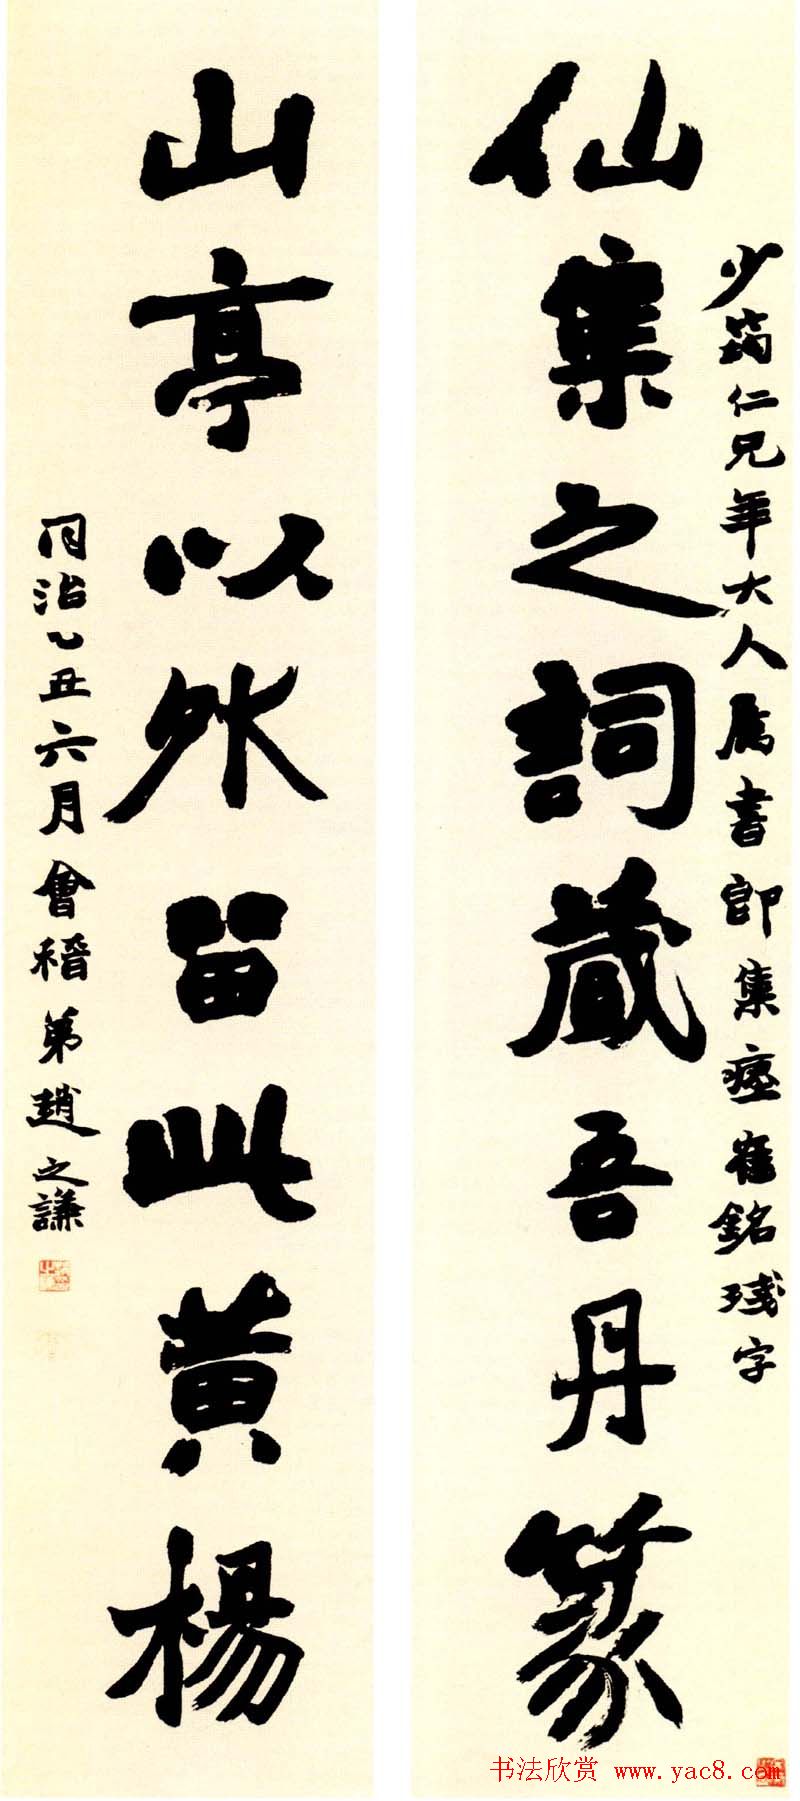 少筠仁兄年大人属書即集瘞崔銘残字
仙集之詞藏吾丹篆
山亭以外留此黄楊
同治乙丑六月會稽弟趙之謙
书法欣赏 www.yac8.com